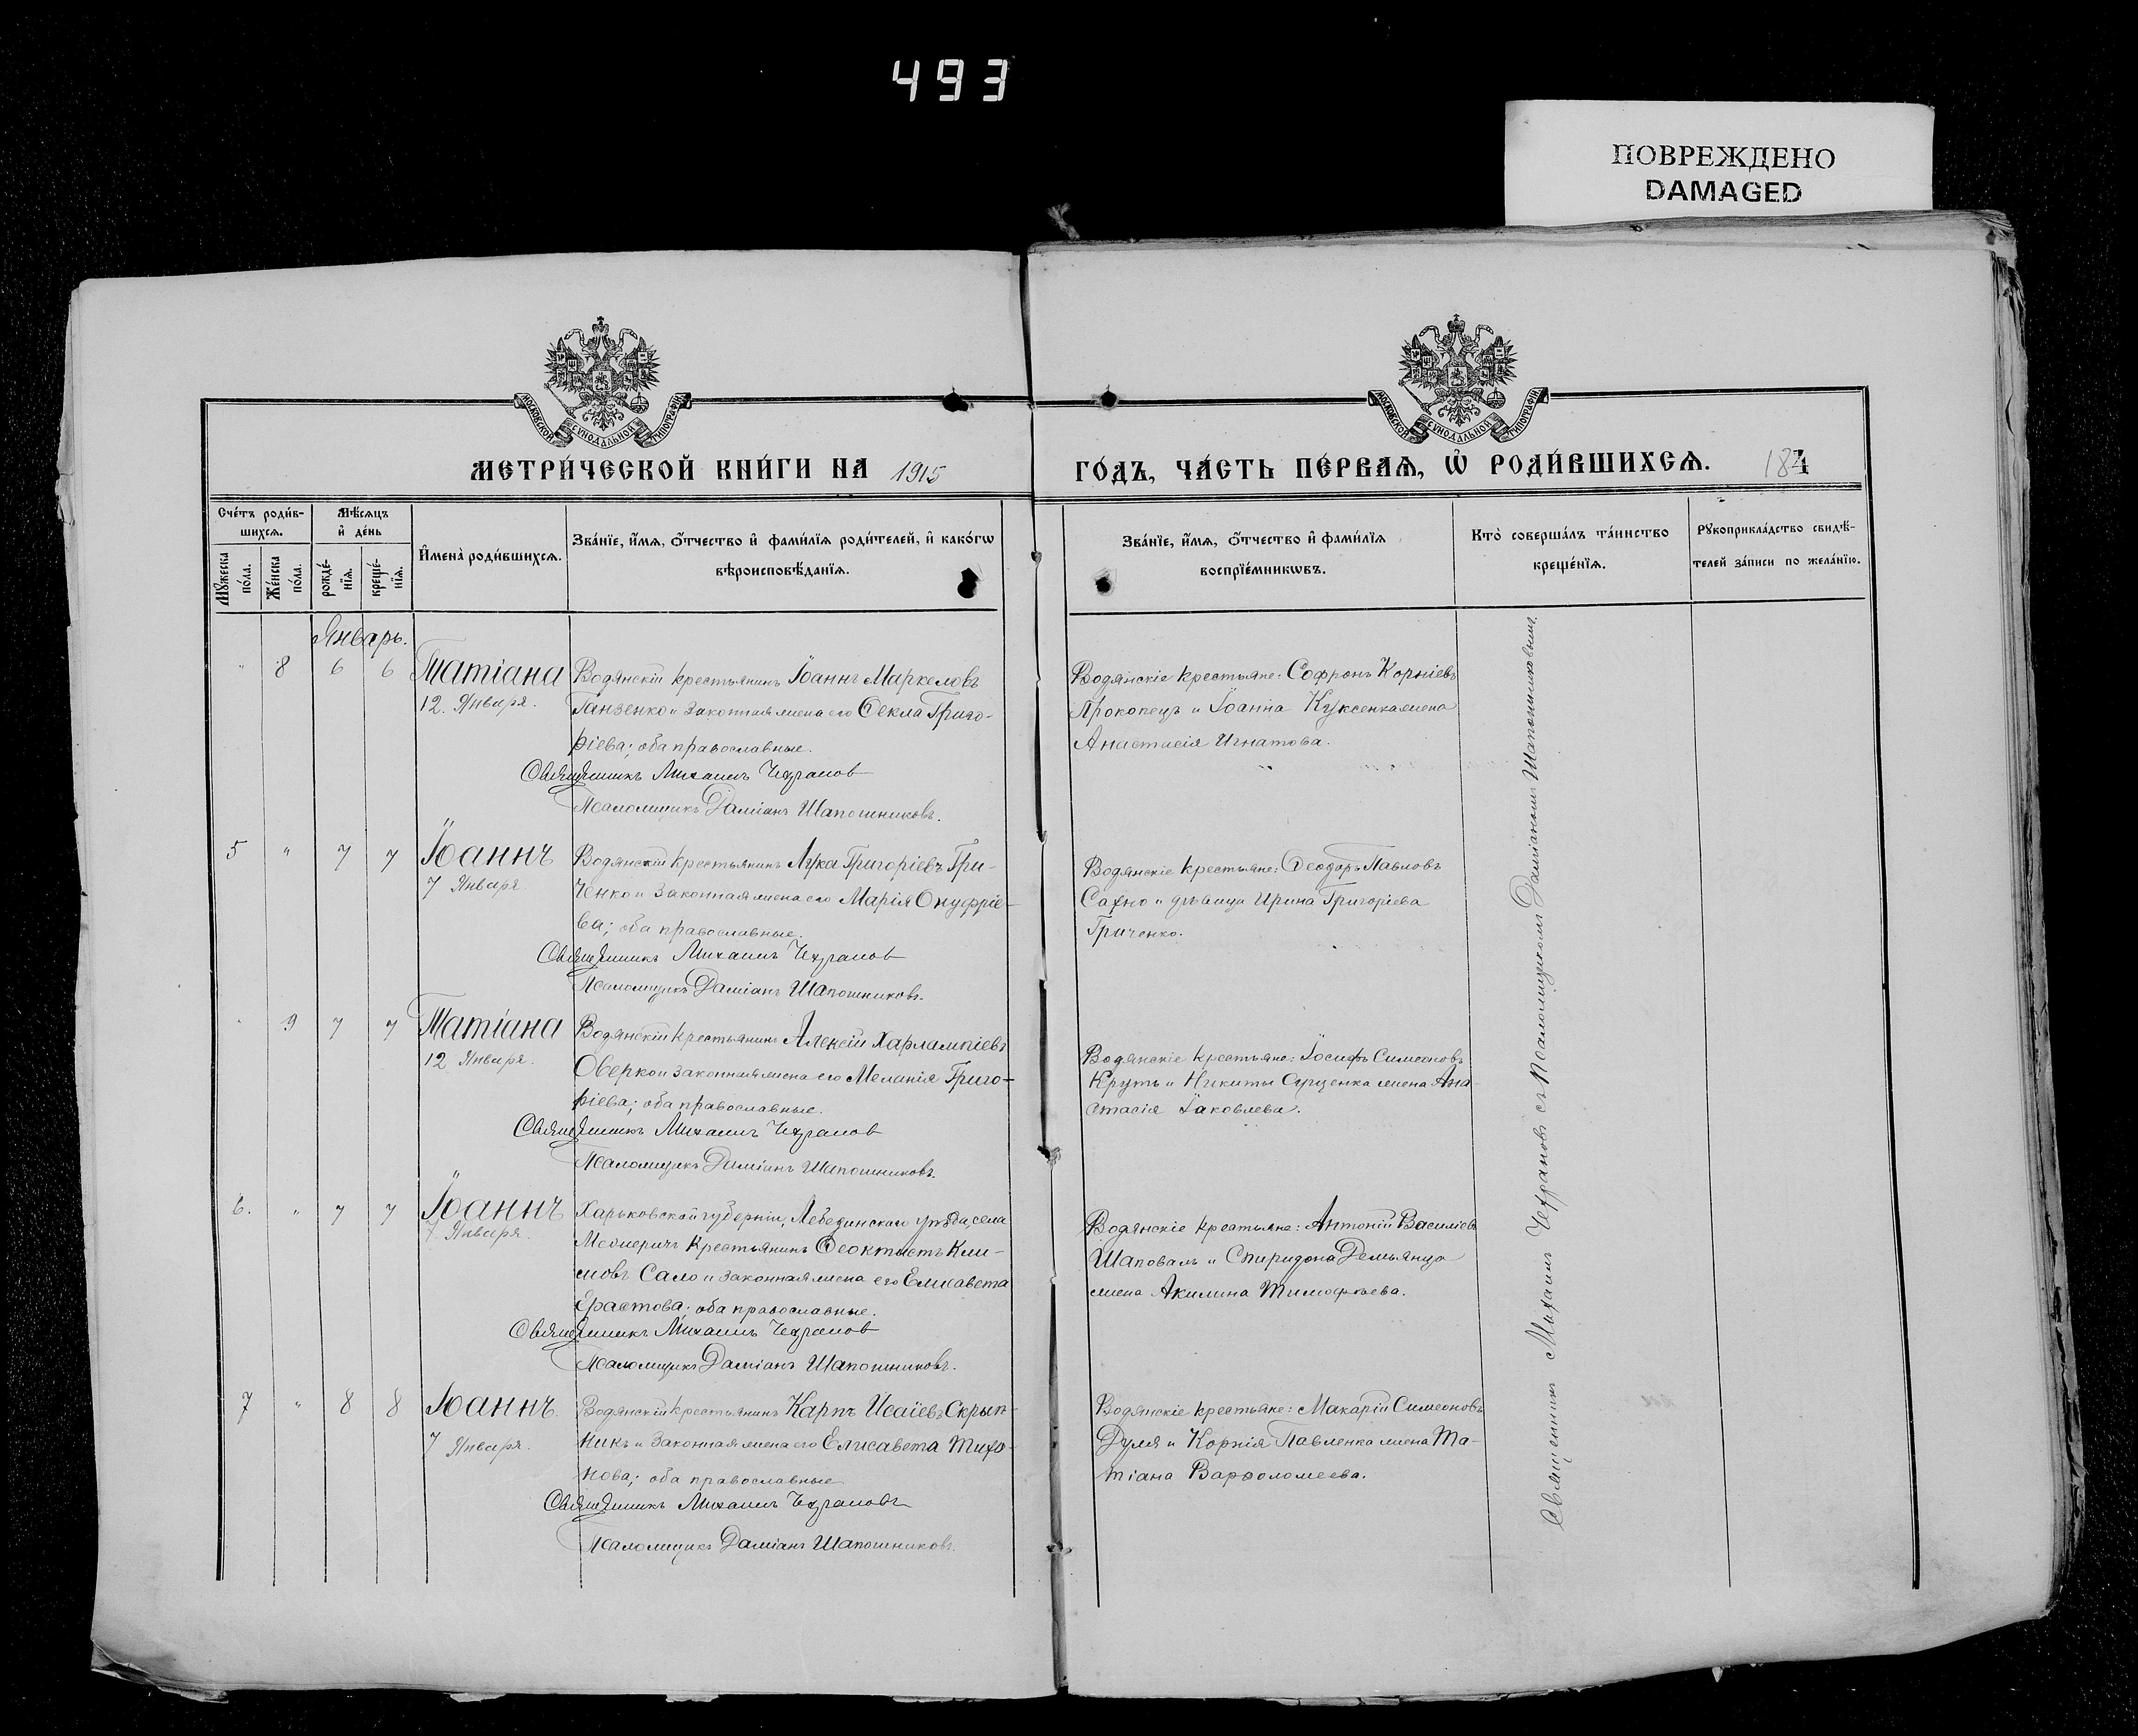 493
ПОВРЕЖДЕНО
DAMAGED
МОСКОВСКОЙ СѴНОДАЛЬНОЙ ТИПОГРАФІИ
МОСКОВСКОЙ СѴНОДАЛЬНОЙ ТИПОГРАФІИ
МЕТРИ́ЧЕСКОЙ КНИ́ГИ НА 1915
ГО́ДЪ, ЧА́СТЬ ПЕ́РВАѦ, Ѡ҆ РОДИ́ВШИХСѦ. 184
Сче́тъ роди́в-
шихсѧ.
Мꙋ́жеска по́ла.
Же́нска по́ла.
Мѣ́сѧцъ
и҆ де́нь
рожде́-
нїѧ.
креще́-
нїѧ.
И҆мена̀ роди́вшихсѧ.
Зва́нїе, и҆́мѧ, ѻ҆́тчество и҆ фами́лїѧ роди́телей, и҆ како́гѡ
вѣроисповѣ́данїѧ.
Зва́нїе, и҆́мѧ, ѻ҆́тчество и҆ фами́лїѧ
воспрїе́мникѡвъ.
Кто̀ соверша́лъ та́инство
креще́нїѧ.
Рꙋкоприкла́дство свидѣ́-
телей за́писи по жела́нїю.
Январь.
" 8 6 6 Татіана
12. Января.
Водянскій крестьянинъ Іоаннъ Маркеловъ
Ганзенко и законная жена его Ѳекла Григо-
ріева; оба православные.
Священникъ Михаилъ Чехранов
Псаломщикъ Даміанъ Шапошниковъ.
Водянскіе крестьяне: Софронъ Корніевъ
Прокопецъ и Іоанна Куксенка жена
Анастасія Игнатова.
5 " 7 7 Іоаннъ
7 Января
Водянскій крестьянинъ Лука Григоріевъ Гри-
ченко и законная жена его Марія Онуфріе-
ва; оба православные.
Священникъ Михаилъ Чехранов
Псаломщикъ Даміанъ Шапошниковъ.
Водянскіе крестьяне: Ѳеодоръ Павловъ
Сахно и дѣвица Ирина Григоріева
Гриченко.
" 9 7 7 Татіана
12 Января.
Водянскій крестьянинъ Алексій Харлампіевъ
Оверко и законная жена его Меланія Григо-
ріева; оба православные.
Священникъ Михаилъ Чехранов
Псаломщикъ Даміанъ Шапошниковъ.
Водянскіе крестьяне: Іосифъ Симеоновъ
Круть и Никиты Сущенка жена Ана-
стасія Іаковлева.
6. " 7 7 Іоаннъ
7. Января.
Харьковской губерніи, Лебединскаго уѣзда, села
Межирича крестьянинъ Ѳеоктистъ Кли-
мовъ Сало и законная жена его Елисавета
Ерастова; оба православные.
Священникъ Михаилъ Чехранов
Псаломщикъ Даміанъ Шапошниковъ.
Водянскіе крестьяне: Антоній Василіевъ
Шаповалъ и Спиридона Демьянца
жена Акилина Тимофѣева.
7 " 8 8 Іоаннъ.
7 Января.
Водянскій крестьянинъ Карпъ Исаіевъ Скрып-
никъ и законная жена его Елисавета Тихо-
нова; оба православные
Священникъ Михаилъ Чехрановъ
Псаломщикъ Даміанъ Шапошниковъ.
Водянскіе крестьяне: Макарій Симеоновъ
Дуля и Корнія Павленка жена Та-
тіана Варѳоломеева.
Священникъ Михаилъ Чехрановъ съ Псаломщикомъ Даміаномъ Шапошниковымъ.